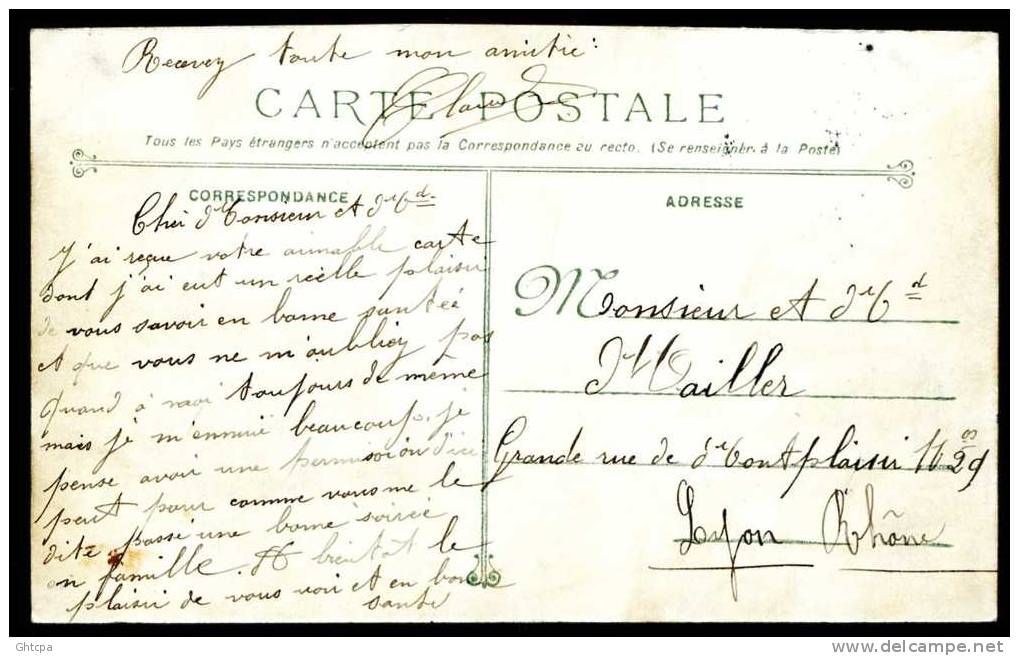 Recevez toute mon amitié :
CARTE POSTALE
Tous les Pays étrangers n'acceptent pas la Correspondance au recto. (Se renseigner à la Poste)
CORRESPONDANCE
Cher Monsieur et Md
J'ai reçue votre aimable carte
dont j'ai eut un réelle plaisir
de vous savoir en bonne santée
et que vous ne m'oubliez pas
quand à moi toujours de même
mais je m'ennuie beaucoup. je
pense avoir une permission d'ici
peut pour comme vous me le
dite passé une bonne soirée
en famille. A bientôt le
plaisir de vous voir et en bonne
santé
ADRESSE
Monsieur et Md
Mailler
Grande rue de Montplaisir
Lyon Rhône
Ghtcpa
www.delcampe.net